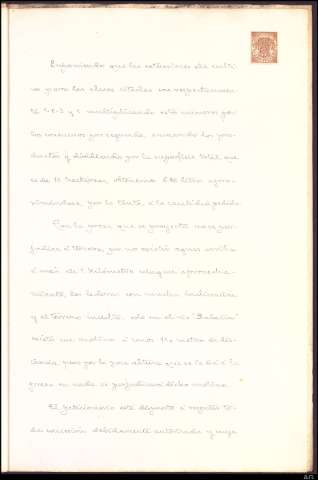 Suponiendo que las extensiones de culti-
vo para las clases citadas son respectivamen-
te 1, 2, 3 y 1 multiplicando estos números por
los consumos por segunda, sumando los pro-
ductos y dividiendo por la superficie total que
es de 15 hectáreas, obtenemos 0'80 litros apro-
ximándose, por lo tanto, a la cantidad pedida
Con la presa que se proyecta no se per-
judica a tercero, pues no existe aguas arriba
a más de 1 kilómetro ningun aprovecha-
miento, las laderas son
y el terreno inculto. solo en el río
existe un molino a unos 115 metros de dis-
tancia, pero por la poca altura que se le da a la
presa en nada se perjudicará dicho molino.
El peticionario está dispuesto a respetar to-
da concesión debidamente autorizada y cuya